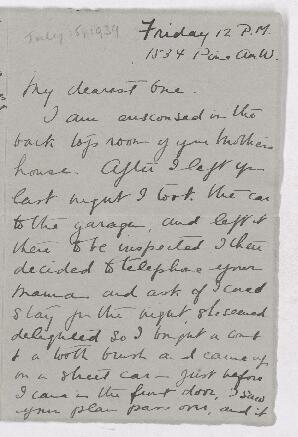 July 15, 1939
Friday 12 P.M.
1534 Pine Ave W.
My dearest One.
I am ensconsed in the
back top room of your Mothers
house. After I left you
last night I took the car
to the garage, and left it
their to be inspected I then
decided to telephone your
Mama and ask if I could
stay for the night, she seemed
delighted so I bought a comb
& a tooth brush and came up
on a street car – just before
I came in the front door, I saw
your plane pass over, and it